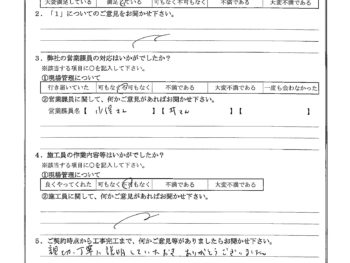 大変満足している 満足している 可もなく不可もなく 不満である 大変不満である
2．「1」についてのご意見をお聞かせ下さい。
3．弊社の営業課員の対応はいかがでしたか？
※該当する項目に○を記入して下さい。
①現場管理について
行き届いていた 可もなく不可もなく 不満である 大変不満である 一度も会わなかった
②営業課員に関して、何かご意見があればお聞かせ下さい。
営業課員名【 さん 】【 さん 】【
4．施工員の作業内容等はいかがでしたか？
※該当する項目に○を記入して下さい。
①現場管理について
良くやってくれた 可もなく不可もなく 不満である 大変不満である
②施工員に関して、何かご意見がありましたらお聞かせ下さい。
5．ご契約時点から工事完工まで、何かご意見等がありましたらお聞かせ下さい。
親切、丁寧に説明していただき ありがとうございました